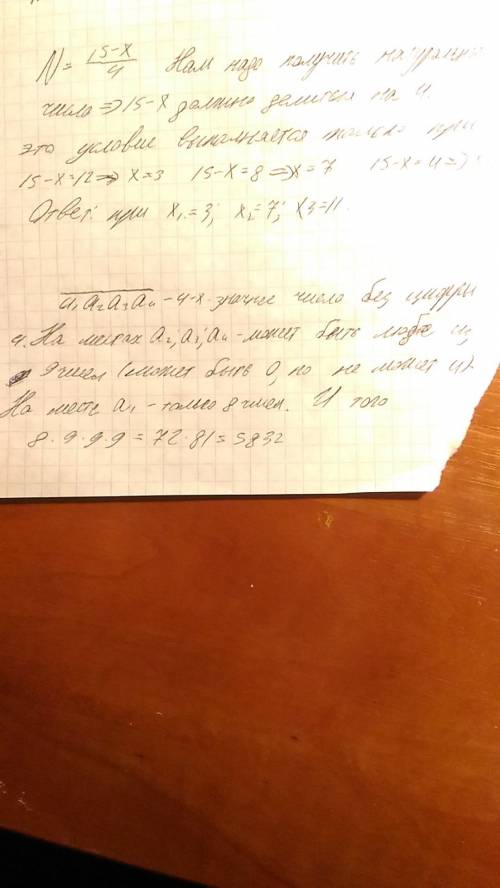 N = 15-x/4 Нам надо получить натуральн
число => 15-x должно делиться на 4.
это условие выполняется только при
15-x=12 => x=3 15-x=8 => x=7 15-x=4 =>
Ответ: при x₁=3; x₂=7; x3=11.
a₁a₂a₃a₄ - 4-х значное число без цифры
4. На местах a₂; a₃; a₄ - может быть любое из
9 чисел (может быть 0, но не может 4).
На месте a₁ - только 8 чисел. И того
8·9·9·9=72·81=5832